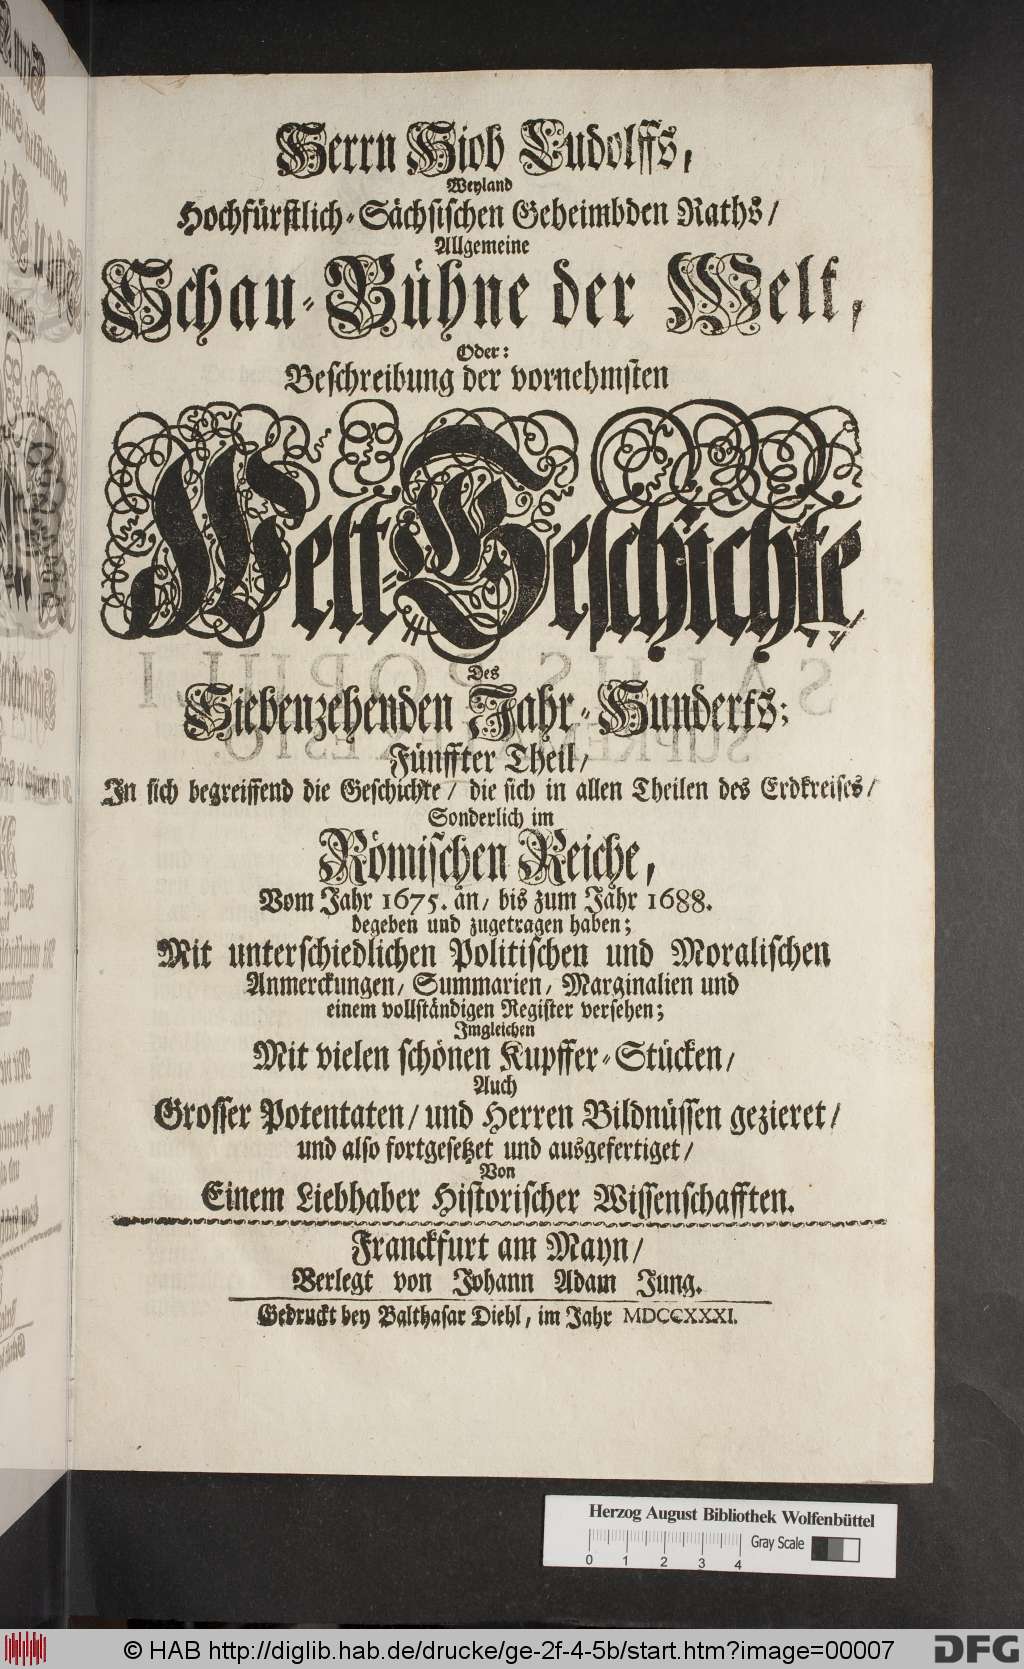 Herrn Hiob Ludolffs,
Weyland
Hochfürstlich-Sächsischen Geheimbden Raths/
Allgemeine
Schau-Bühne der Welt,
Oder:
Beschreibung der vornehmsten
Welt-Geschichte
Des
Siebenzehenden Jahr-Hunderts;
Fünffter Theil/
In sich begreiffend die Geschichte/ die sich in allen Theilen des Erdkreises/
Sonderlich im
Römischen Reiche,
Vom Jahr 1675. an/ bis zum Jahr 1688.
begeben und zugetragen haben;
Mit unterschiedlichen Politischen und Moralischen
Anmerckungen/ Summarien/ Marginalien und
einem vollständigen Register versehen;
Imgleichen
Mit vielen schönen Kupffer-Stücken/
Auch
Grosser Potentaten/ und Herren Bildnüssen gezieret/
und also fortgesetzet und ausgefertiget/
Von
Einem Liebhaber Historischer Wissenschafften.
Franckfurt am Mayn/
Verlegt von Johann Adam Jung.
Gedruckt bey Balthasar Diehl, im Jahr MDCCXXXI.
Herzog August Bibliothek Wolfenbüttel
Gray Scale
0 1 2 3 4
© HAB http://diglib.hab.de/drucke/ge-2f-4-5b/start.htm?image=00007
DFG